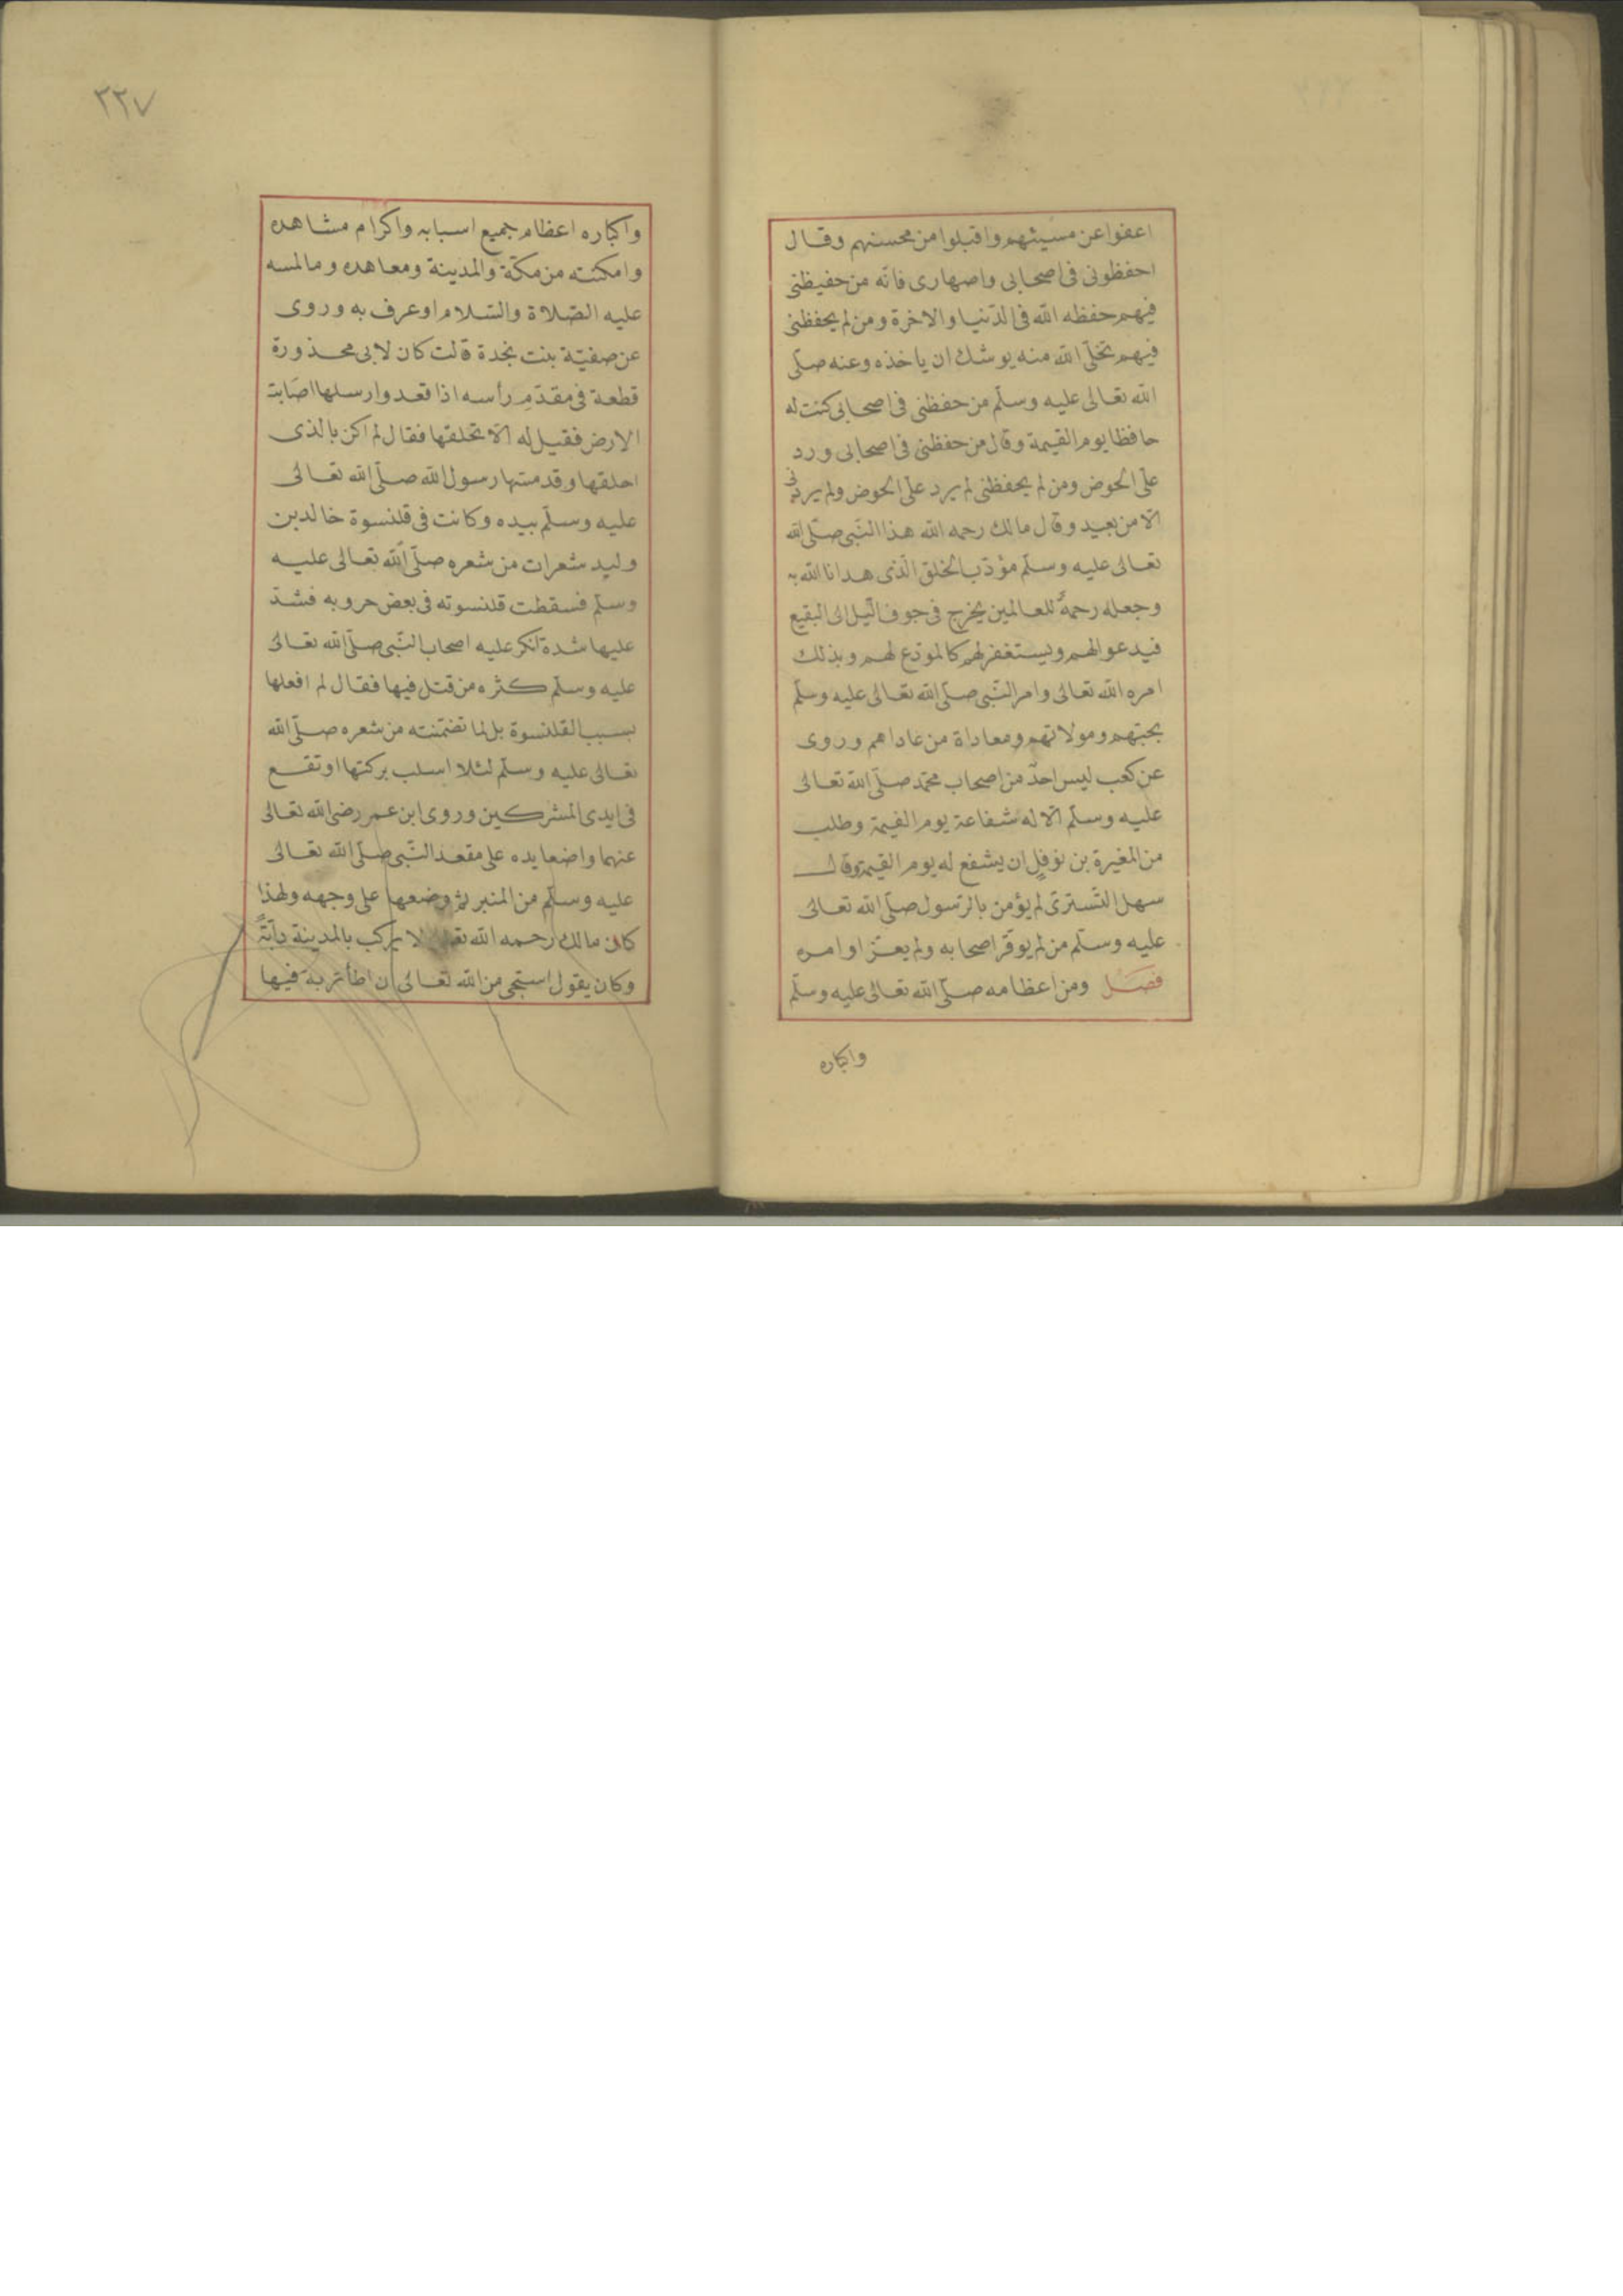 اعفوا عن مسيئهم واقبلوا من محسنهم وقال
احفظونى فى اصحابى واصهارى فانّه من حفيظنى
فيهم حفظه الله فى الدّنيا والاخرة ومن لم يحفظنى
فيهم تخلّى الله منه يوشك ان ياخذه وعنه صلّى
الله تعالى عليه وسلّم من حفظنى فى اصحابى كنت له
حافظا يوم القيمة وقال من حفظنى فى اصحابى ورد
علىّ الحوض ومن لم يحفظنى لم يرد علىّ الحوض ولم يرنى
الّا من بعيد وقال مالك رحمه الله هذا النّبى صلّى الله
تعالى عليه وسلّم مؤدّب الخلق الّذى هدانا الله به
وجعله رحمةً للعالمين يخرج فى جوف الّيل الى البقيع
فيدعوا لهم ويستغفر لهم كالمودّع لهم وبذلك
امره الله تعالى وامر النّبى صلّى الله تعالى عليه وسلّم
بحبّهم ومولاتهم ومعاداة من عاداهم وروى
عن كعب ليس احدٌ من اصحاب محمّد صلّى الله تعالى
عليه وسلّم الّا له شفاعة يوم القيمة وطلب
من المغيرة بن نوفلٍ ان يشفع له يوم القيمة وقال
سهل التّسترىّ لم يؤمن بالرّسول صلّى الله تعالى
عليه وسلّم من لم يوقّر اصحابه ولم يعزّ اوامره
فصل ومن اعظامه صلّى الله تعالى عليه وسلّم
واكباره
٣٢٧
واكباره اعظام جميع اسبابه واكرام مشاهده
وامكنته من مكّة والمدينة ومعاهده وما لمسه
عليه الصّلاة والسّلام او عرف به وروى
عن صفيّة بنت نجدة قالت كان لابى محذورة
قطعة فى مقدّم رأسه اذا قعد وارسلها اصابت
الارض فقيل له الّا تحلقها فقال لم اكن بالذى
احلقها وقد مسّها رسول الله صلّى الله تعالى
عليه وسلّم بيده وكانت فى قلنسوة خالد بن
وليد شعرات من شعره صلّى الله تعالى عليه
وسلّم فسقطت قلنسوته فى بعض حروبه فشدّ
عليها شدة انكر عليه اصحاب النّبى صلّى الله تعالى
عليه وسلّم كثره من قتل فيها فقال لم افعلها
بسبب القلنسوة بل لما تضمّنته من شعره صلّى الله
تعالى عليه وسلّم لئلا اسلب بركتها او تقع
فى ايدى المشركين وروى ابن عمر رضى الله تعالى
عنهما واضعا يده على مقعد النّبى صلّى الله تعالى
عليه وسلّم من المنبر ثمّ وضعها على وجهه ولهذا
كان مالك رحمه الله لا يركب بالمدينة دابّةً
وكان يقول استحيى من الله تعالى ان اطأ تربة فيها